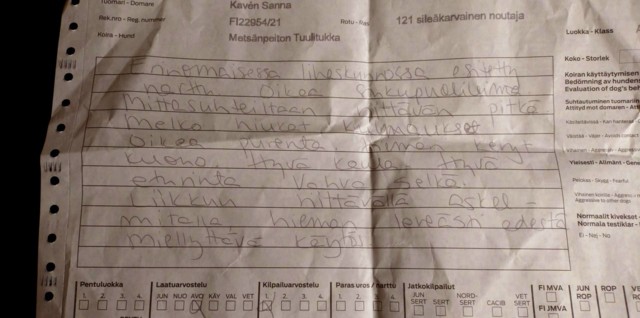 Tuomari - Domare
Kavén Sanna
Rek.nro - Reg. nummer
FI22954/21
Rotu - Ras
121 sileäkarvainen noutaja
Koira - Hund
Metsänpeiton Tuulitukka
Luokka - Klass
Koko - Storlek
Koiran käyttäytymisen
Bedömning av hundens
Evaluation of dog's beh
Suhtautuminen tuomariin
Attityd mot domaren - Att
Vihainen - Aggressiv - Aggre
Yleisesti - Allmänt - Gene
Pelokas - Skygg - Fearful
Aggressive to other dogs
Normaalit kivekset
Normala testiklar
Ei - Nej - No
Erinomaisessa lihaskunnossa esitetty
narttu Oikea sukupuolileima
Mittasuhteiltaan riittävän pitkä
Melko niukat kulmaukset
Oikea purenta
kuono Hyvä kaula Hyvä
eturinta Vahva selkä
Liikkuu riittävällä askel
mitalla hieman leveästi edestä
Miellyttävä käytös
Pentuluokka
1. 2. 3. 4.
Laatuarvostelu
JUN NUO AVO KÄY VAL VET
Kilpailuarvostelu
1. 2. 3. 4.
Paras uros / narttu
1. 2. 3. 4.
Jatkokilpailut
JUN SERT
SERT
NORD-SERT
CACIB
VET SERT
FI MVA
FI JMVA
JUN ROP
ROP